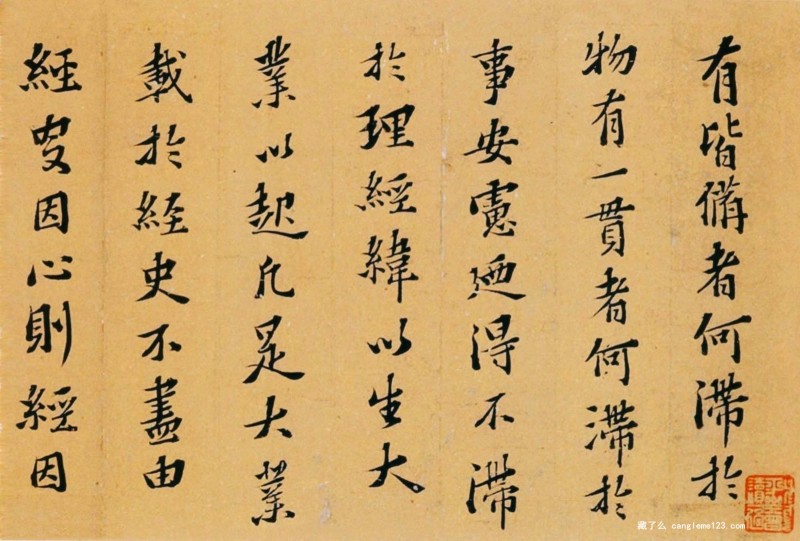 有皆備者何滯於
物有一貫者何滯於
事安慮迺得不滯
於理經緯以生大
業以起凡是大業
載於経史不盡由
經史因心則經因
藏了么 cangleme123.com